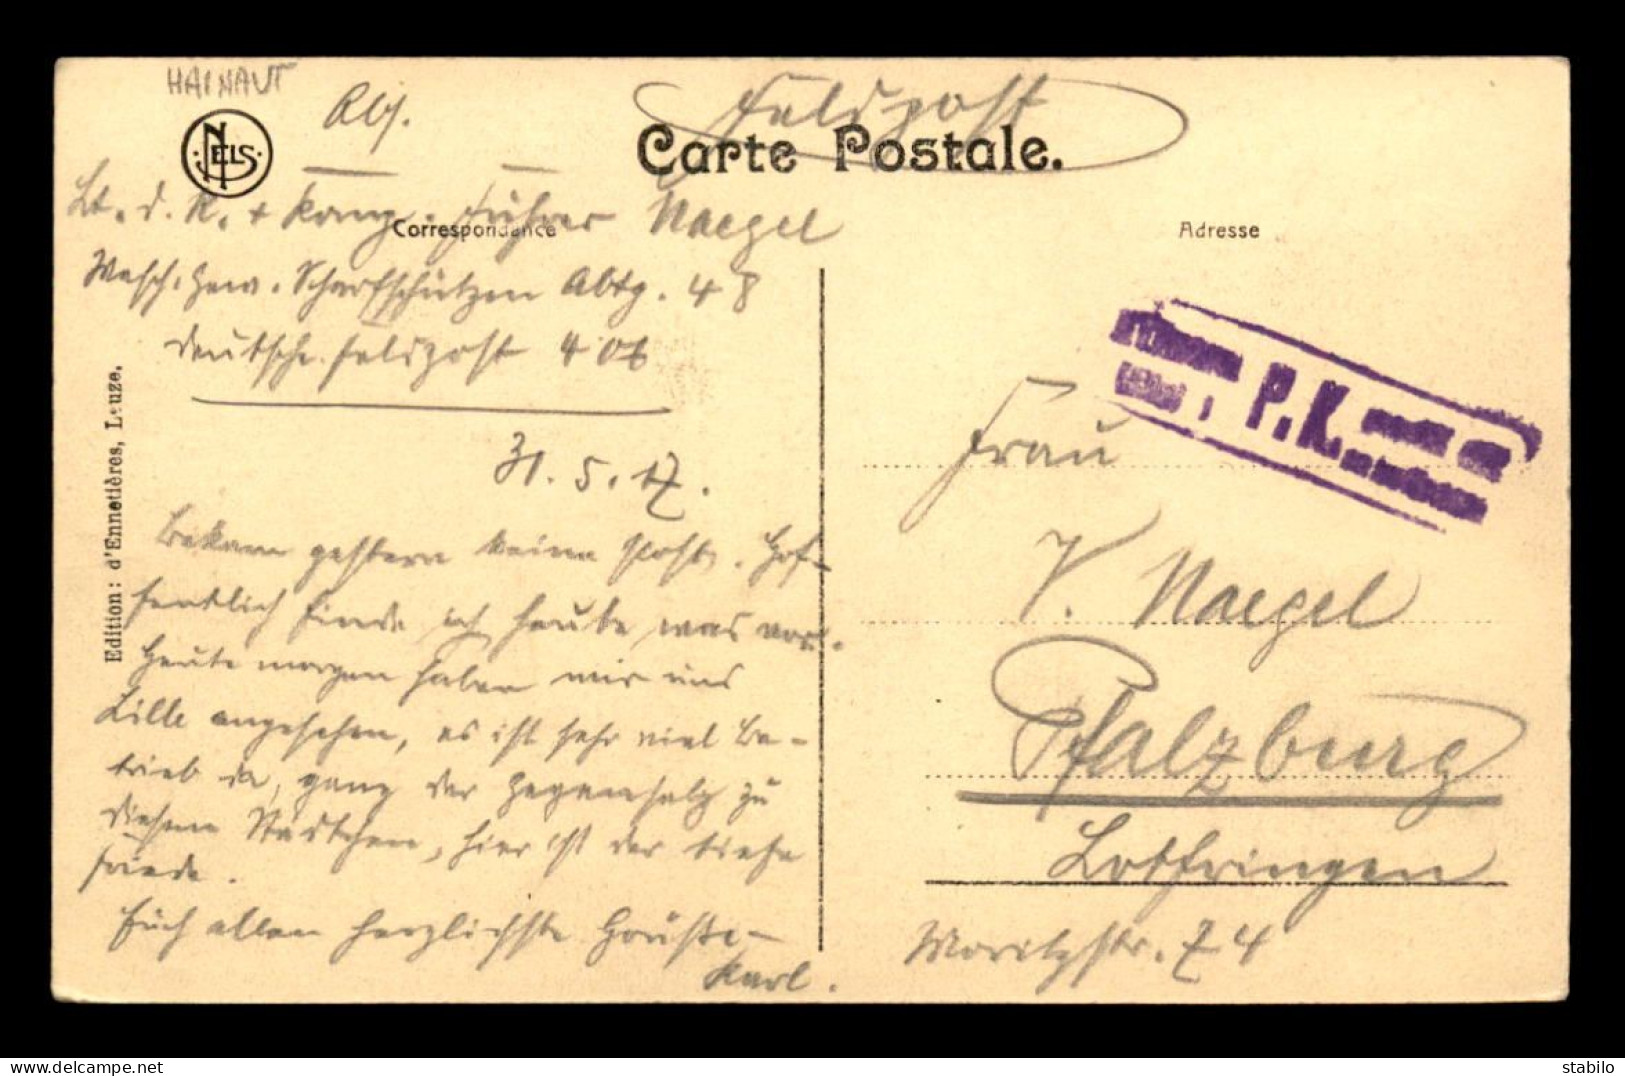 HAINAUT
NELS
Abs.
Feldpost
Carte Postale.
Lt. d. R. + Komp. Führer Naegel
Correspondance
Adresse
Masch. Gew. Scharfschützen Abtg. 48
Deutsche Feldpost 406
31. 5. 17.
P.K.
Bekam gestern keine Post. Hof-
fentlich finde ich heute was vor.
Heute morgen haben wir uns
Lille angesehen, es ist sehr viel Be-
trieb da, ganz der Gegensatz zu
diesem Städtchen, hier ist der tiefe
Friede.
Euch allen herzlichste Grüße
Karl.
Frau
V. Naegel
Pfalzburg
Lothringen
Moritzstr. 74
Edition: d'Ennetières, Leuze.